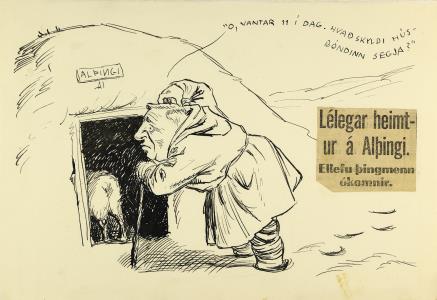 "Ó, VANTAR 11 Í DAG. HVAÐ SKYLDI HÚS-
BÓNDINN SEGJA?"
ALÞINGI
Lélegar heimt-
ur á Alþingi.
Ellefu þingmenn
ókomnir.